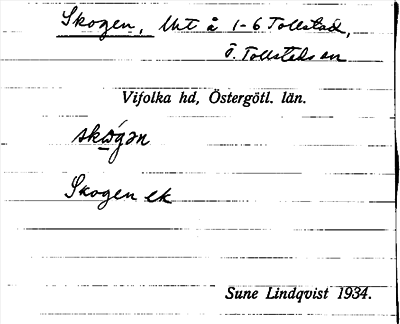 Skogen, Utt å 1-6 Tollstad,
Ö. Tollstads sn
Vifolka hd, Östergötl. län.
skώgən
Skogen ek
Sune Lindqvist 1934.